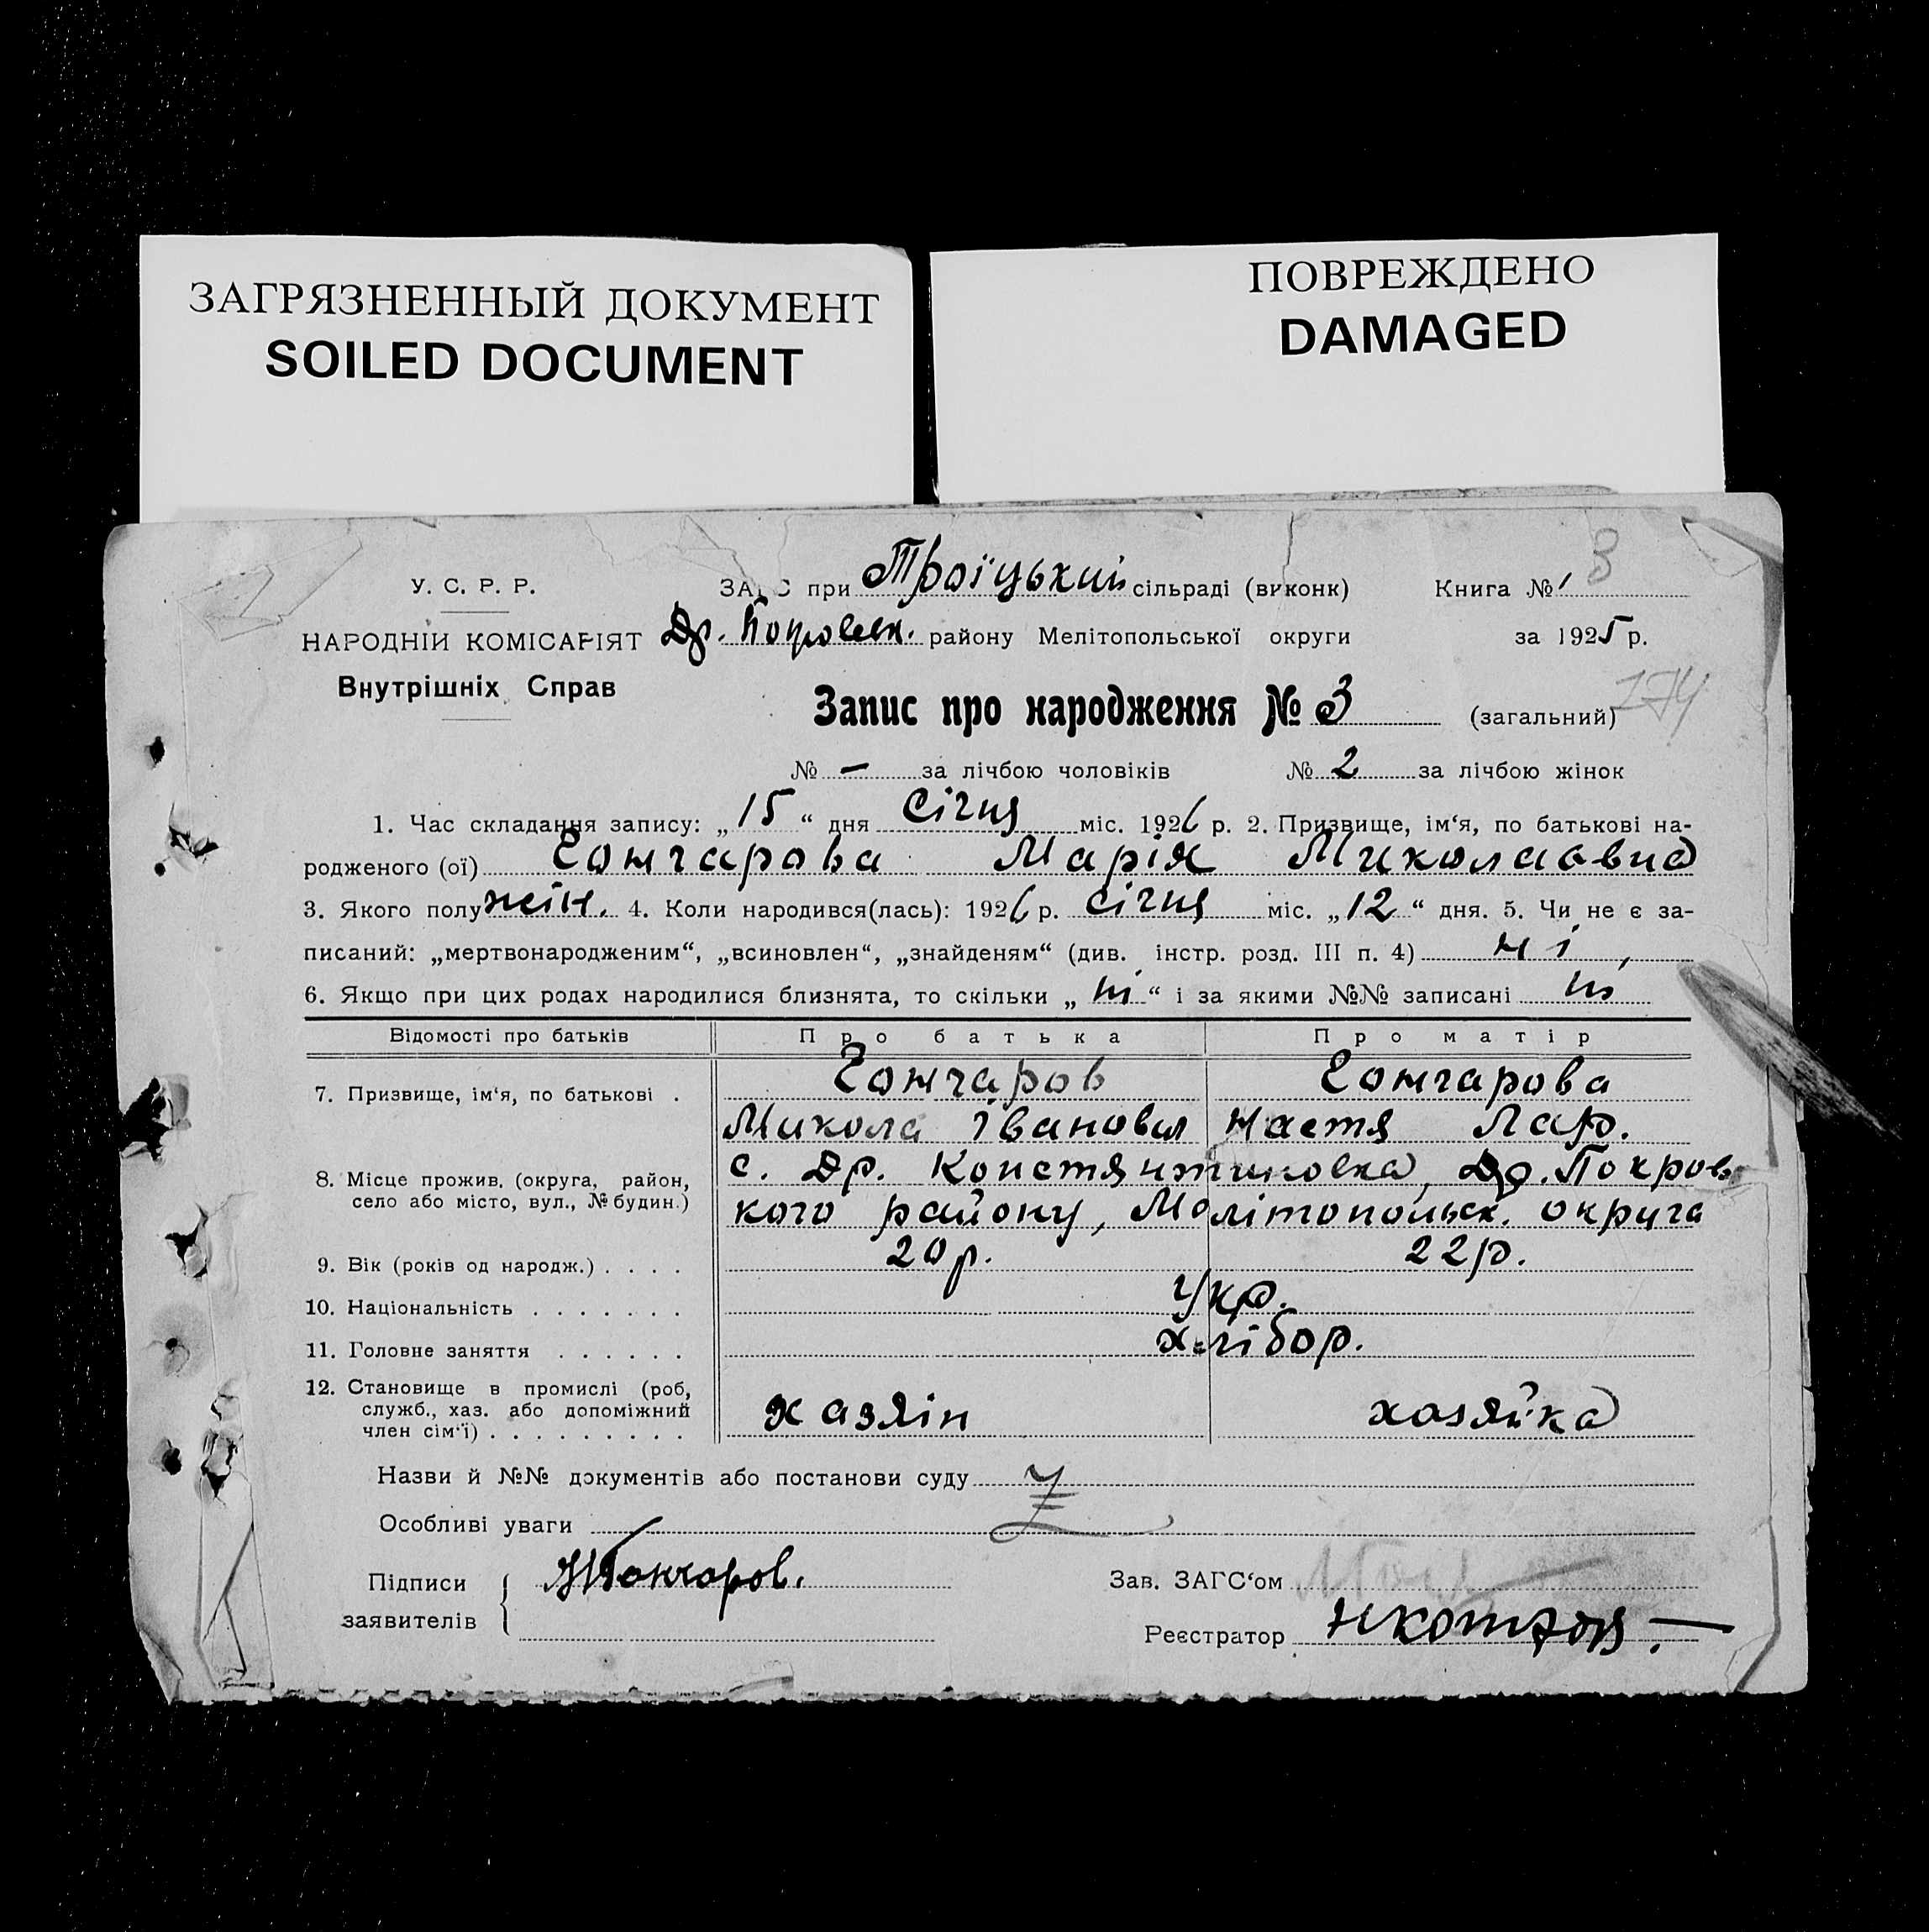 ЗАГРЯЗНЕННЫЙ ДОКУМЕНТ
SOILED DOCUMENT
ПОВРЕЖДЕНО
DAMAGED
У. С. Р. Р.
НАРОДНІЙ КОМІСАРІЯТ
Внутрішніх Справ
ЗАГС при Троїцький сільраді (виконк)
Книга № 3
Др. Покровськ. району Мелітопольської округи
за 1925 р.
174
Запис про народження № 3 (загальний)
№ — за лічбою чоловіків № 2 за лічбою жінок
1. Час складання запису: „15“ дня Січня міс. 1926 р. 2. Призвище, ім‘я, по батькові на-
родженого (ої) Гончарова Марія Миколаєвна
3. Якого полу жін. 4. Коли народився(лась): 1926 р. Січня міс. „12“ дня. 5. Чи не є за-
писаний: „мертвонародженим“, „всиновлен“, „знайденям“ (див. інстр. розд. III п. 4) ні,
6. Якщо при цих родах народилися близнята, то скільки „ні“ і за якими №№ записані ні
Відомості про батьків Про батька Про матір
7. Призвище, ім‘я, по батькові . Гончаров Гончарова
Микола Іванович Настя Лар.
8. Місце прожив. (округа, район,
село або місто, вул., № будин.)
с. Др. Констянтиновка, Др. Покровв
кого району, Мелітопольськ. округа
9. Вік (років од народж.) . . . . 20 р. 22 р.
10. Національність . . . . . . . Укр.
11. Головне заняття . . . . . . хлібор.
12. Становище в промислі (роб,
служб., хаз. або допоміжний
член сім‘ї) . . . . . . . . .
хазяін хазяйка
Назви й №№ документів або постанови суду
Особливі уваги
Підписи
заявителів
Гончаров.
Зав. ЗАГС‘ом
Реєстратор